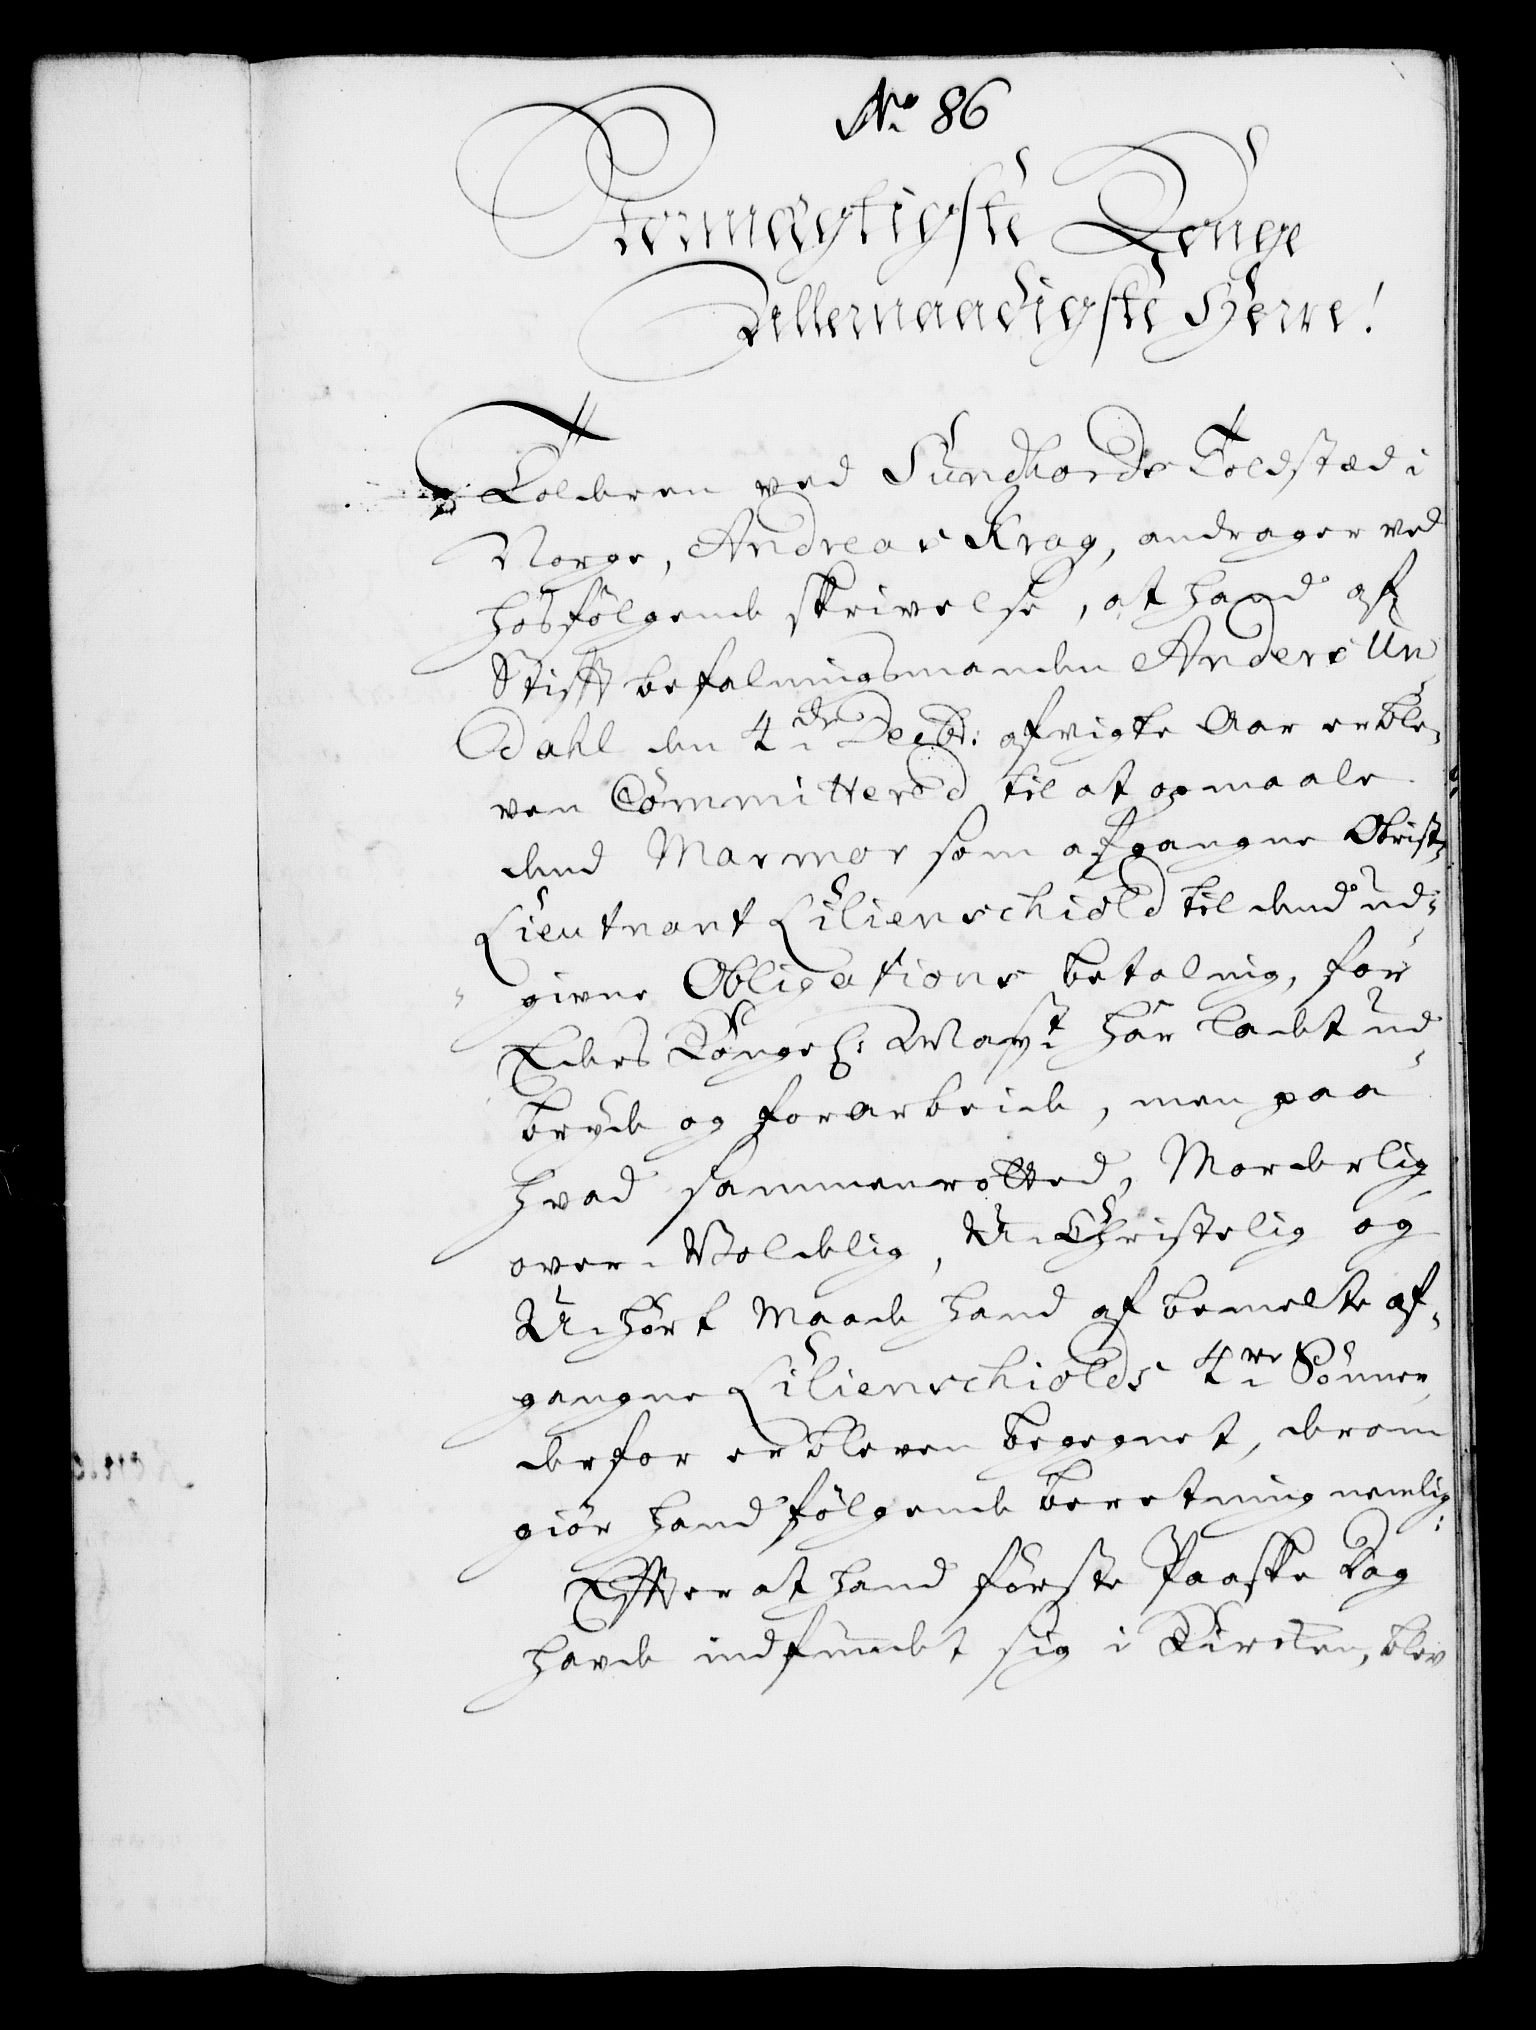 No. 86
Stormægtigste Konge
Allernaadigste Herre!
Tolderen ved Sundhords Toldstæd i
Norge, Andreas Krag, andrager ved
hosfølgende skrivelse, at hand af
Stiftbefalningsmanden Anders Un
Dahl den 4de Decbr: afvigte Aar er ble-
ven Committered til at opmaale
dend Marmor som afgangne Obrist-
Lieutnant Lilienschiold til dend ud-
givne Obligations betaling, for
Eders Konge: Mayt har ladet ud
bryde og forarbeide, men paa
hvad sammenrotted, Morderlig
over-Voldelig, U-Christelig og
U-hørt Maade hand af bemelte af-
gangne Lilienschiolds 4re Sønner
derfor er bleven begegnet, derom
giør hand følgende beretning nemlig:
Effter at hand første Paaske Dag
havde indfundet sig i Kircken, blev